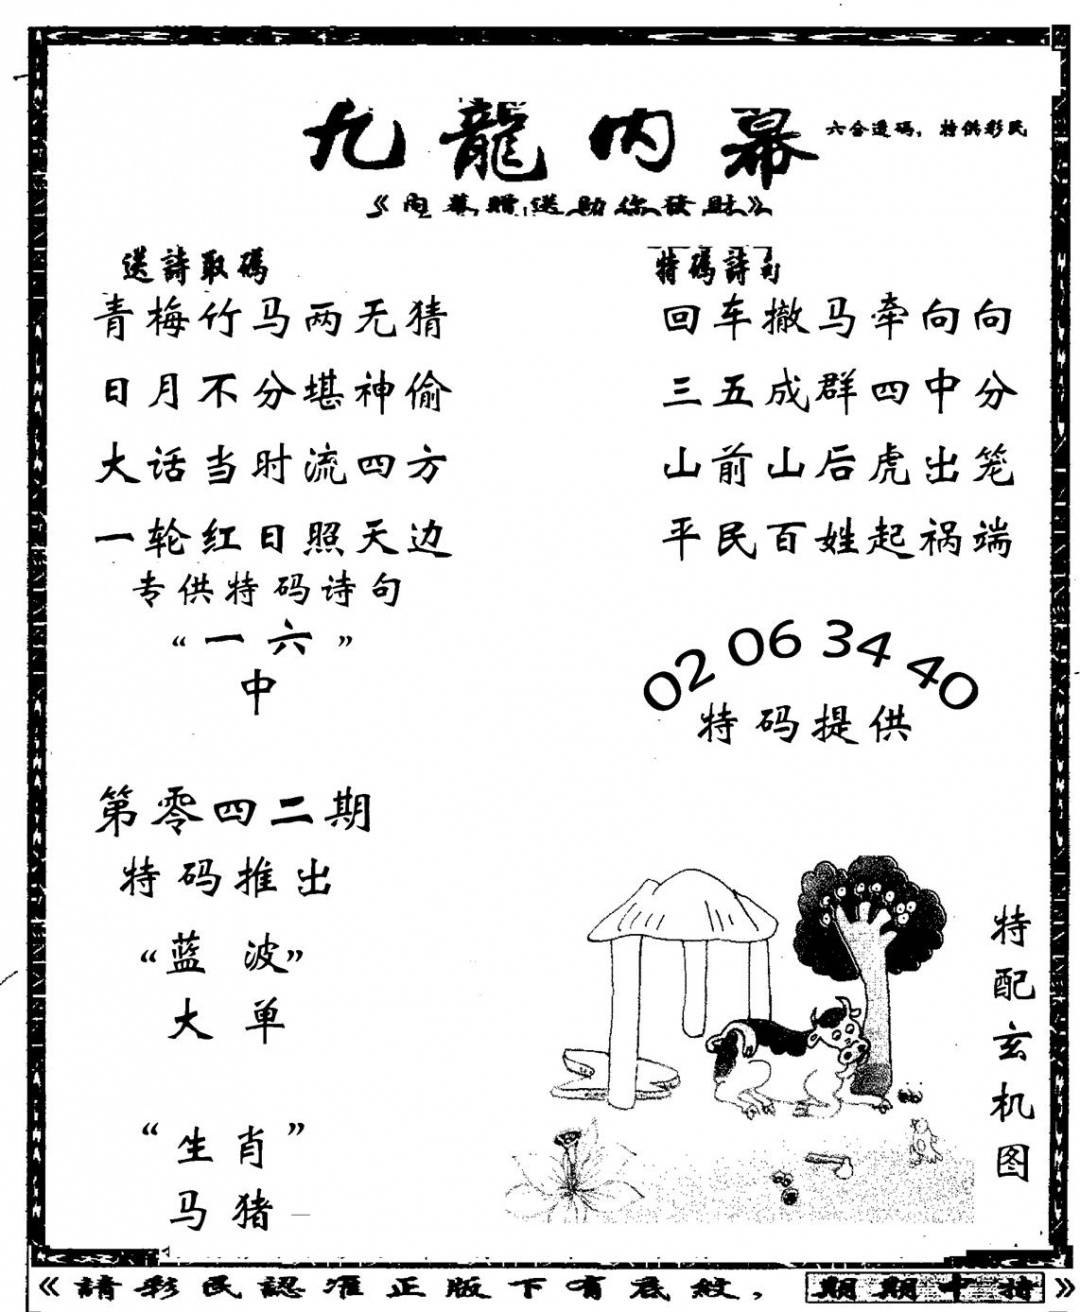 九龍内幕
六合透码，特供彩民
《内幕赠送助你發财》
送詩取碼
青梅竹马两无猜
日月不分堪神偷
大话当时流四方
一轮红日照天边
专供特码诗句
“一六”
中
第零四二期
特码推出
“蓝波”
大单
“生肖”
马猪
特碼詩句
回车撤马牵向向
三五成群四中分
山前山后虎出笼
平民百姓起祸端
02 06 34 40
特码提供
特配玄机图
《請彩民認准正版下有底紋，期期中特》